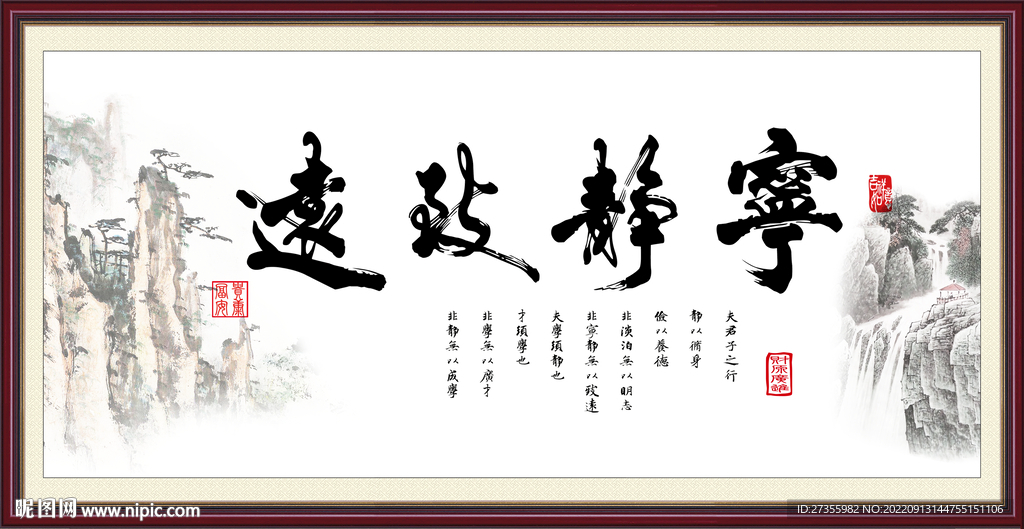 寧靜致遠
夫君子之行
靜以脩身
儉以養德
非淡泊無以明志
非寧靜無以致遠
夫學須靜也
才須學也
非學無以廣才
非靜無以成學
富貴康安
昵图网 www.nipic.com
ID:27355982 NO:20220913144755151106